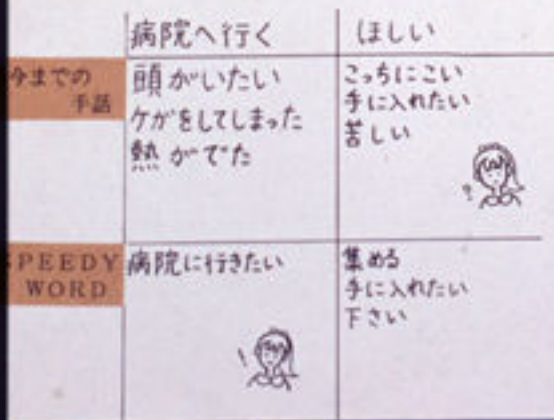 病院へ行く
ほしい
今までの
手話
頭がいたい
ケガをしてしまった
熱がでた
こっちにこい
手に入れたい
苦しい
?
SPEEDY
WORD
病院に行きたい
集める
手に入れたい
下さい